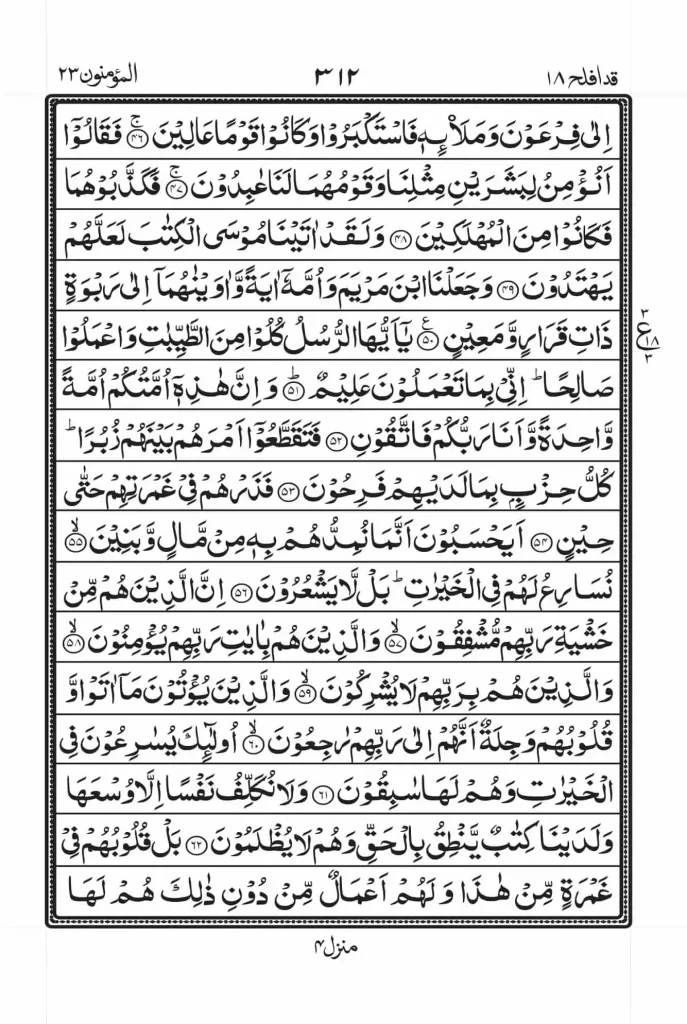 المؤمنون ٢٣
٣١٢
قد افلح ١٨
اِلٰى فِرْعَوْنَ وَمَلَا۟ئِهٖ فَاسْتَكْبَرُوْا وَكَانُوْا قَوْمًا عَالِيْنَ ۚ‏﴿۴۶﴾ فَقَالُوْۤا
اَنُؤْمِنُ لِبَشَرَيْنِ مِثْلِنَا وَقَوْمُهُمَا لَنَا عٰبِدُوْنَ ۚ‏﴿۴۷﴾ فَكَذَّبُوْهُمَا
فَكَانُوْا مِنَ الْمُهْلَكِيْنَ ﴿۴۸﴾ وَلَقَدْ اٰتَيْنَا مُوْسَى الْكِتٰبَ لَعَلَّهُمْ
يَهْتَدُوْنَ ﴿۴۹﴾ وَجَعَلْنَا ابْنَ مَرْيَمَ وَاُمَّهٗۤ اٰيَةً وَّاٰوَيْنٰهُمَاۤ اِلٰى رَبْوَةٍ
ذَاتِ قَرَارٍ وَّمَعِيْنٍ ﴿۵۰﴾ۧ يٰۤاَيُّهَا الرُّسُلُ كُلُوْا مِنَ الطَّيِّبٰتِ وَاعْمَلُوْا
٣ ع ١٨ ٣
صَالِحًا ؕ اِنِّىْ بِمَا تَعْمَلُوْنَ عَلِيْمٌ ؕ‏﴿۵۱﴾ وَاِنَّ هٰذِهٖۤ اُمَّتُكُمْ اُمَّةً
وَّاحِدَةً وَّاَنَا رَبُّكُمْ فَاتَّقُوْنِ ﴿۵۲﴾ فَتَقَطَّعُوْۤا اَمْرَهُمْ بَيْنَهُمْ زُبُرًا ؕ
كُلُّ حِزْبٍۭ بِمَا لَدَيْهِمْ فَرِحُوْنَ ﴿۵۳﴾ فَذَرْهُمْ فِىْ غَمْرَتِهِمْ حَتّٰى
حِيْنٍ ﴿۵۴﴾ اَيَحْسَبُوْنَ اَنَّمَا نُمِدُّهُمْ بِهٖ مِنْ مَّالٍ وَّبَنِيْنَ ۙ‏﴿۵۵﴾
نُسَارِعُ لَهُمْ فِى الْخَيْرٰتِ ؕ بَلْ لَّا يَشْعُرُوْنَ ﴿۵۶﴾ اِنَّ الَّذِيْنَ هُمْ مِّنْ
خَشْيَةِ رَبِّهِمْ مُّشْفِقُوْنَ ۙ‏﴿۵۷﴾ وَالَّذِيْنَ هُمْ بِاٰيٰتِ رَبِّهِمْ يُؤْمِنُوْنَ ۙ‏﴿۵۸﴾
وَالَّذِيْنَ هُمْ بِرَبِّهِمْ لَا يُشْرِكُوْنَ ۙ‏﴿۵۹﴾ وَالَّذِيْنَ يُؤْتُوْنَ مَاۤ اٰتَوْا وَّ
قُلُوْبُهُمْ وَجِلَةٌ اَنَّهُمْ اِلٰى رَبِّهِمْ رٰجِعُوْنَ ۙ‏﴿۶۰﴾ اُولٰٓئِكَ يُسٰرِعُوْنَ فِى
الْخَيْرٰتِ وَهُمْ لَهَا سٰبِقُوْنَ ﴿۶۱﴾ وَلَا نُكَلِّفُ نَفْسًا اِلَّا وُسْعَهَا
وَلَدَيْنَا كِتٰبٌ يَّنْطِقُ بِالْحَقِّ وَهُمْ لَا يُظْلَمُوْنَ ﴿۶۲﴾ بَلْ قُلُوْبُهُمْ فِىْ
غَمْرَةٍ مِّنْ هٰذَا وَلَهُمْ اَعْمَالٌ مِّنْ دُوْنِ ذٰلِكَ هُمْ لَهَا
منزل ۴